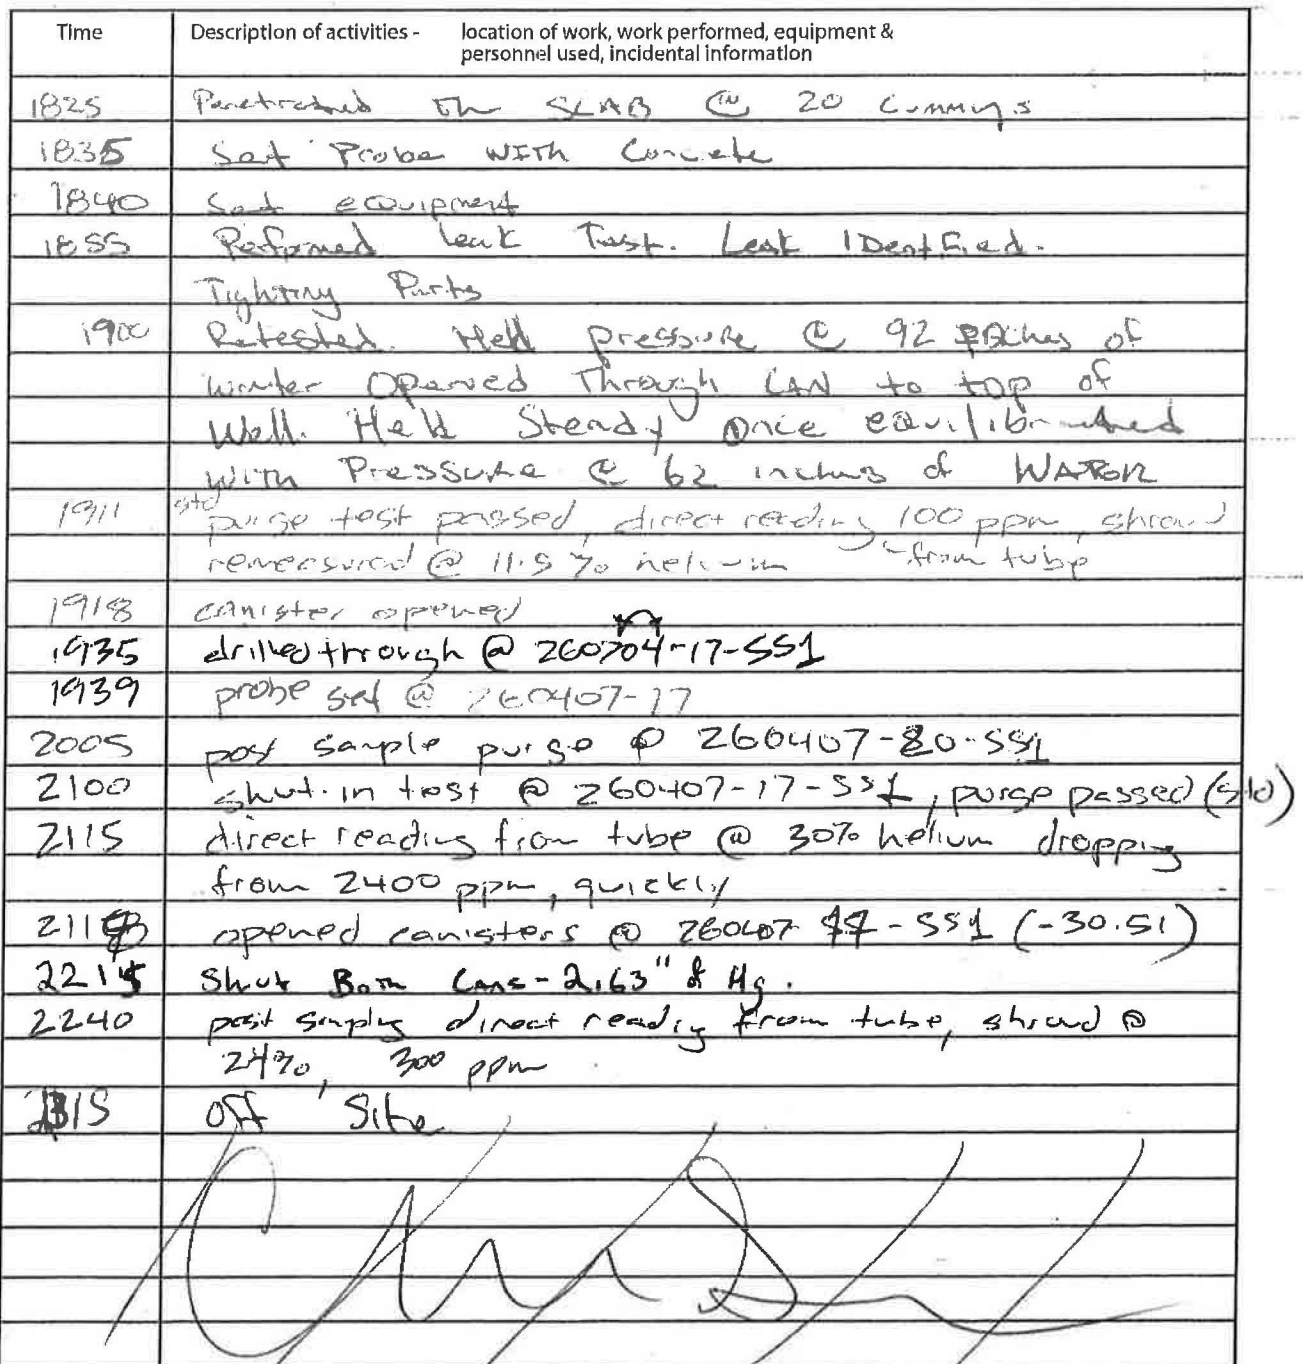 Time Description of activities - location of work, work performed, equipment &
personnel used, incidental information
1825 Penetrated the SLAB @ 20 Cummings
1835 Set Probe WITH Concrete
1840 Set equipment
1855 Performed leak Test. Leak IDentified.
Tighting Parts
1900 Retested. Held pressure @ 92 inches of
water Opened Through CAN to top of
Well. Held Steady once equilibrated
WITH Pressure @ 62 inches of WATER
1911 std purge test passed, direct reading 100 ppm, shroud
remeasured @ 11.5% helium from tube
1918 canister opened
1935 drilled through @ 260704-17-SS1
1939 probe set @ 260407-17
2005 post sample purge @ 260407-20-SS1
2100 shut-in test @ 260407-17-SS1, purge passed (std)
2115 direct reading from tube @ 30% helium dropping
from 2400 ppm, quickly
opened canisters @ 260407-17-SS1 (-30.51)
2215 Shut Both Cans - 2.63" of Hg.
2240 post sampling direct reading from tube, shroud @
24%, 300 ppm
2315 Off Site